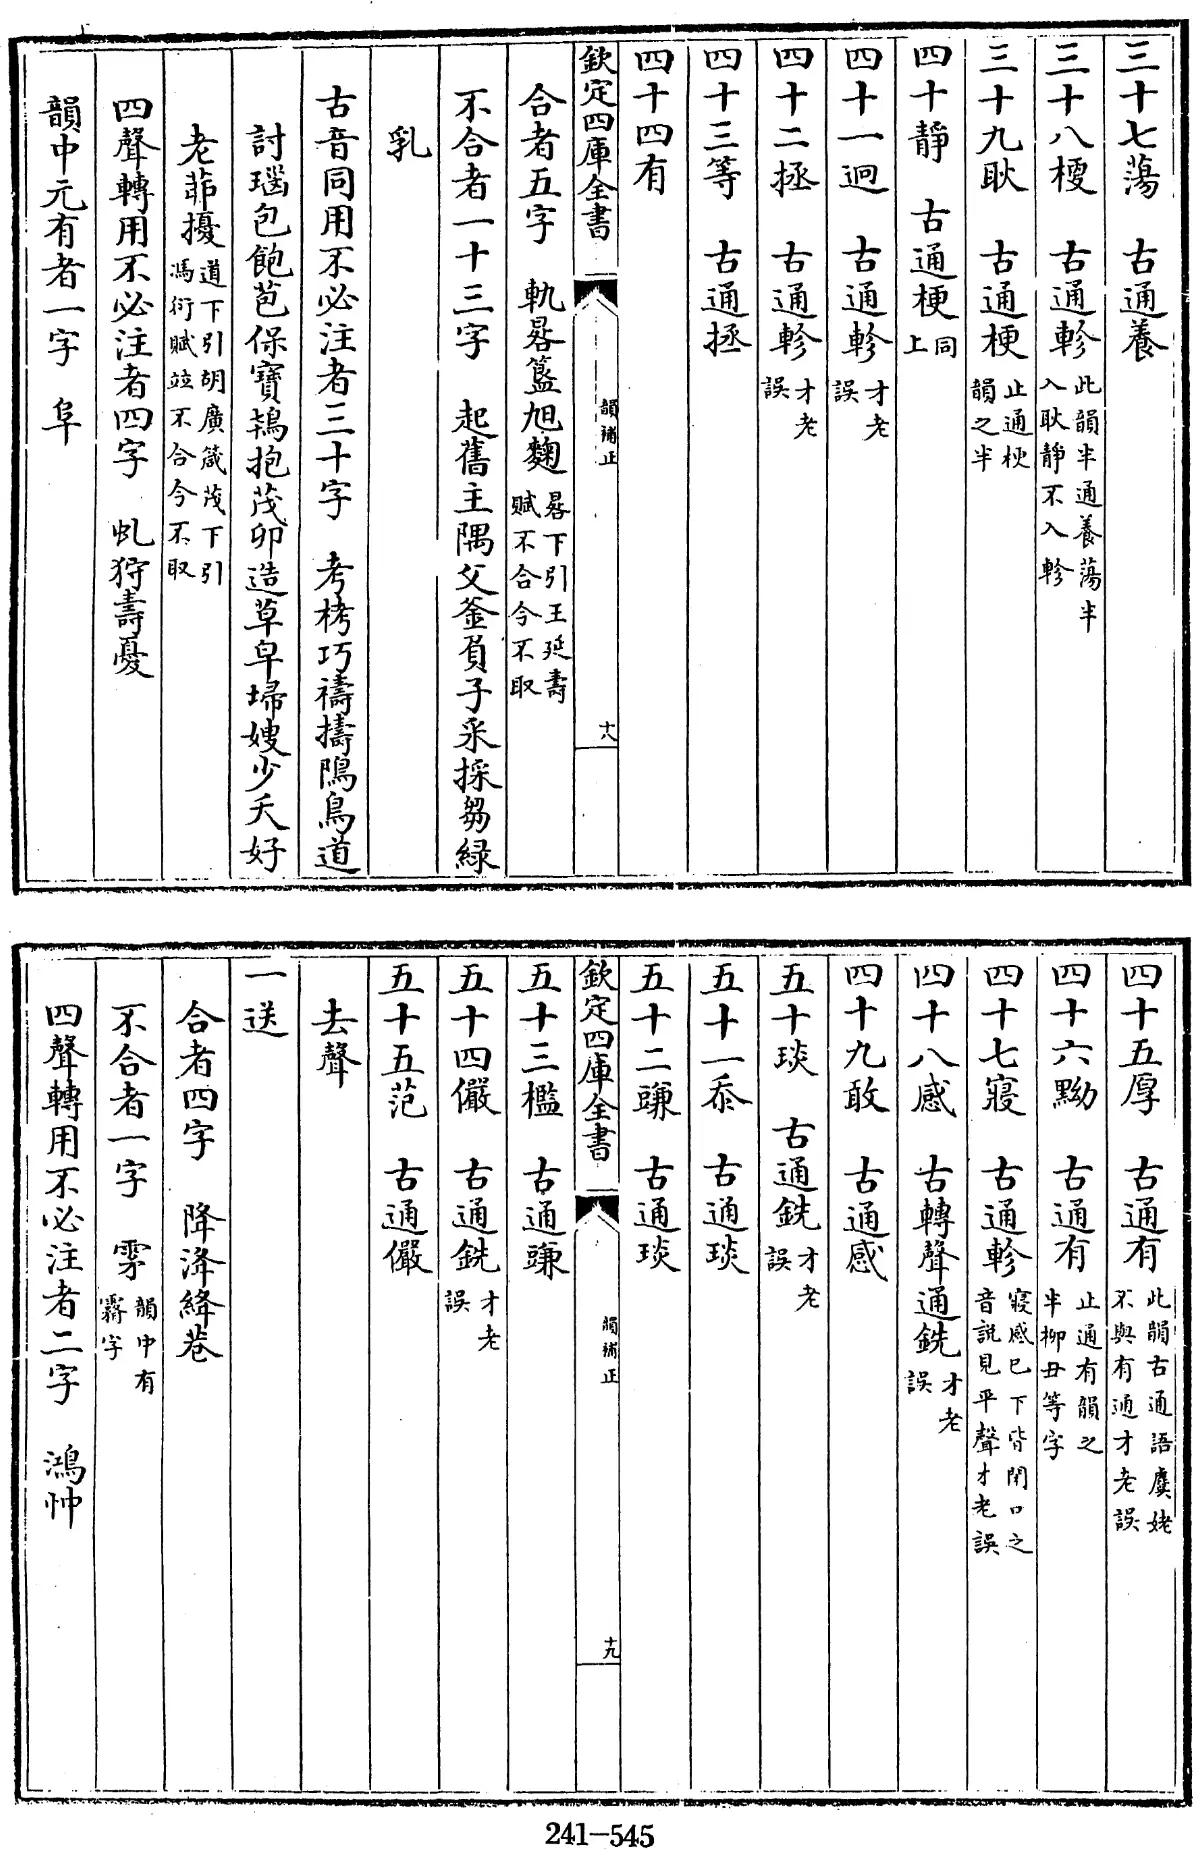 三十七蕩　古通養
三十八梗　古通軫此韻半通養蕩半入耿靜不入軫
三十九耿　古通梗止通梗韻之半
四十靜　古通梗同上
四十一迥　古通軫才老誤
四十二拯　古通軫才老誤
四十三等　古通拯
四十四有
欽定四庫全書　韻補正　十八
合者五字　軌晷簋旭麹晷下引王延壽賦不合今不取
不合者一十三字　起舊主隅父釜負子采採芻綠
乳
古音同用不必注者三十字　考栲巧禱擣隝鳥道
討瑙包飽苞保寶鴇抱茂卯造草皁埽嫂少夭好
老茆擾道下引胡廣箴茂下引馮衍賦竝不合今不取
四聲轉用不必注者四字　虬狩壽憂
韻中元有者一字　阜
四十五厚　古通有此韻古通語麌姥不與有通才老誤
四十六黝　古通有止通有韻之半柳丑等字
四十七寑　古通軫寑感巳下皆閉口之音說見平聲才老誤
四十八感　古轉聲通銑才老誤
四十九敢　古通感
五十琰　古通銑才老誤
五十一忝　古通琰
五十二豏　古通琰
欽定四庫全書　韻補正　十九
五十三檻　古通豏
五十四儼　古通銑才老誤
五十五范　古通儼
去聲
一送
合者四字　降洚絳巷
不合者一字　雺韻中有霿字
四聲轉用不必注者二字　鴻忡
241—545